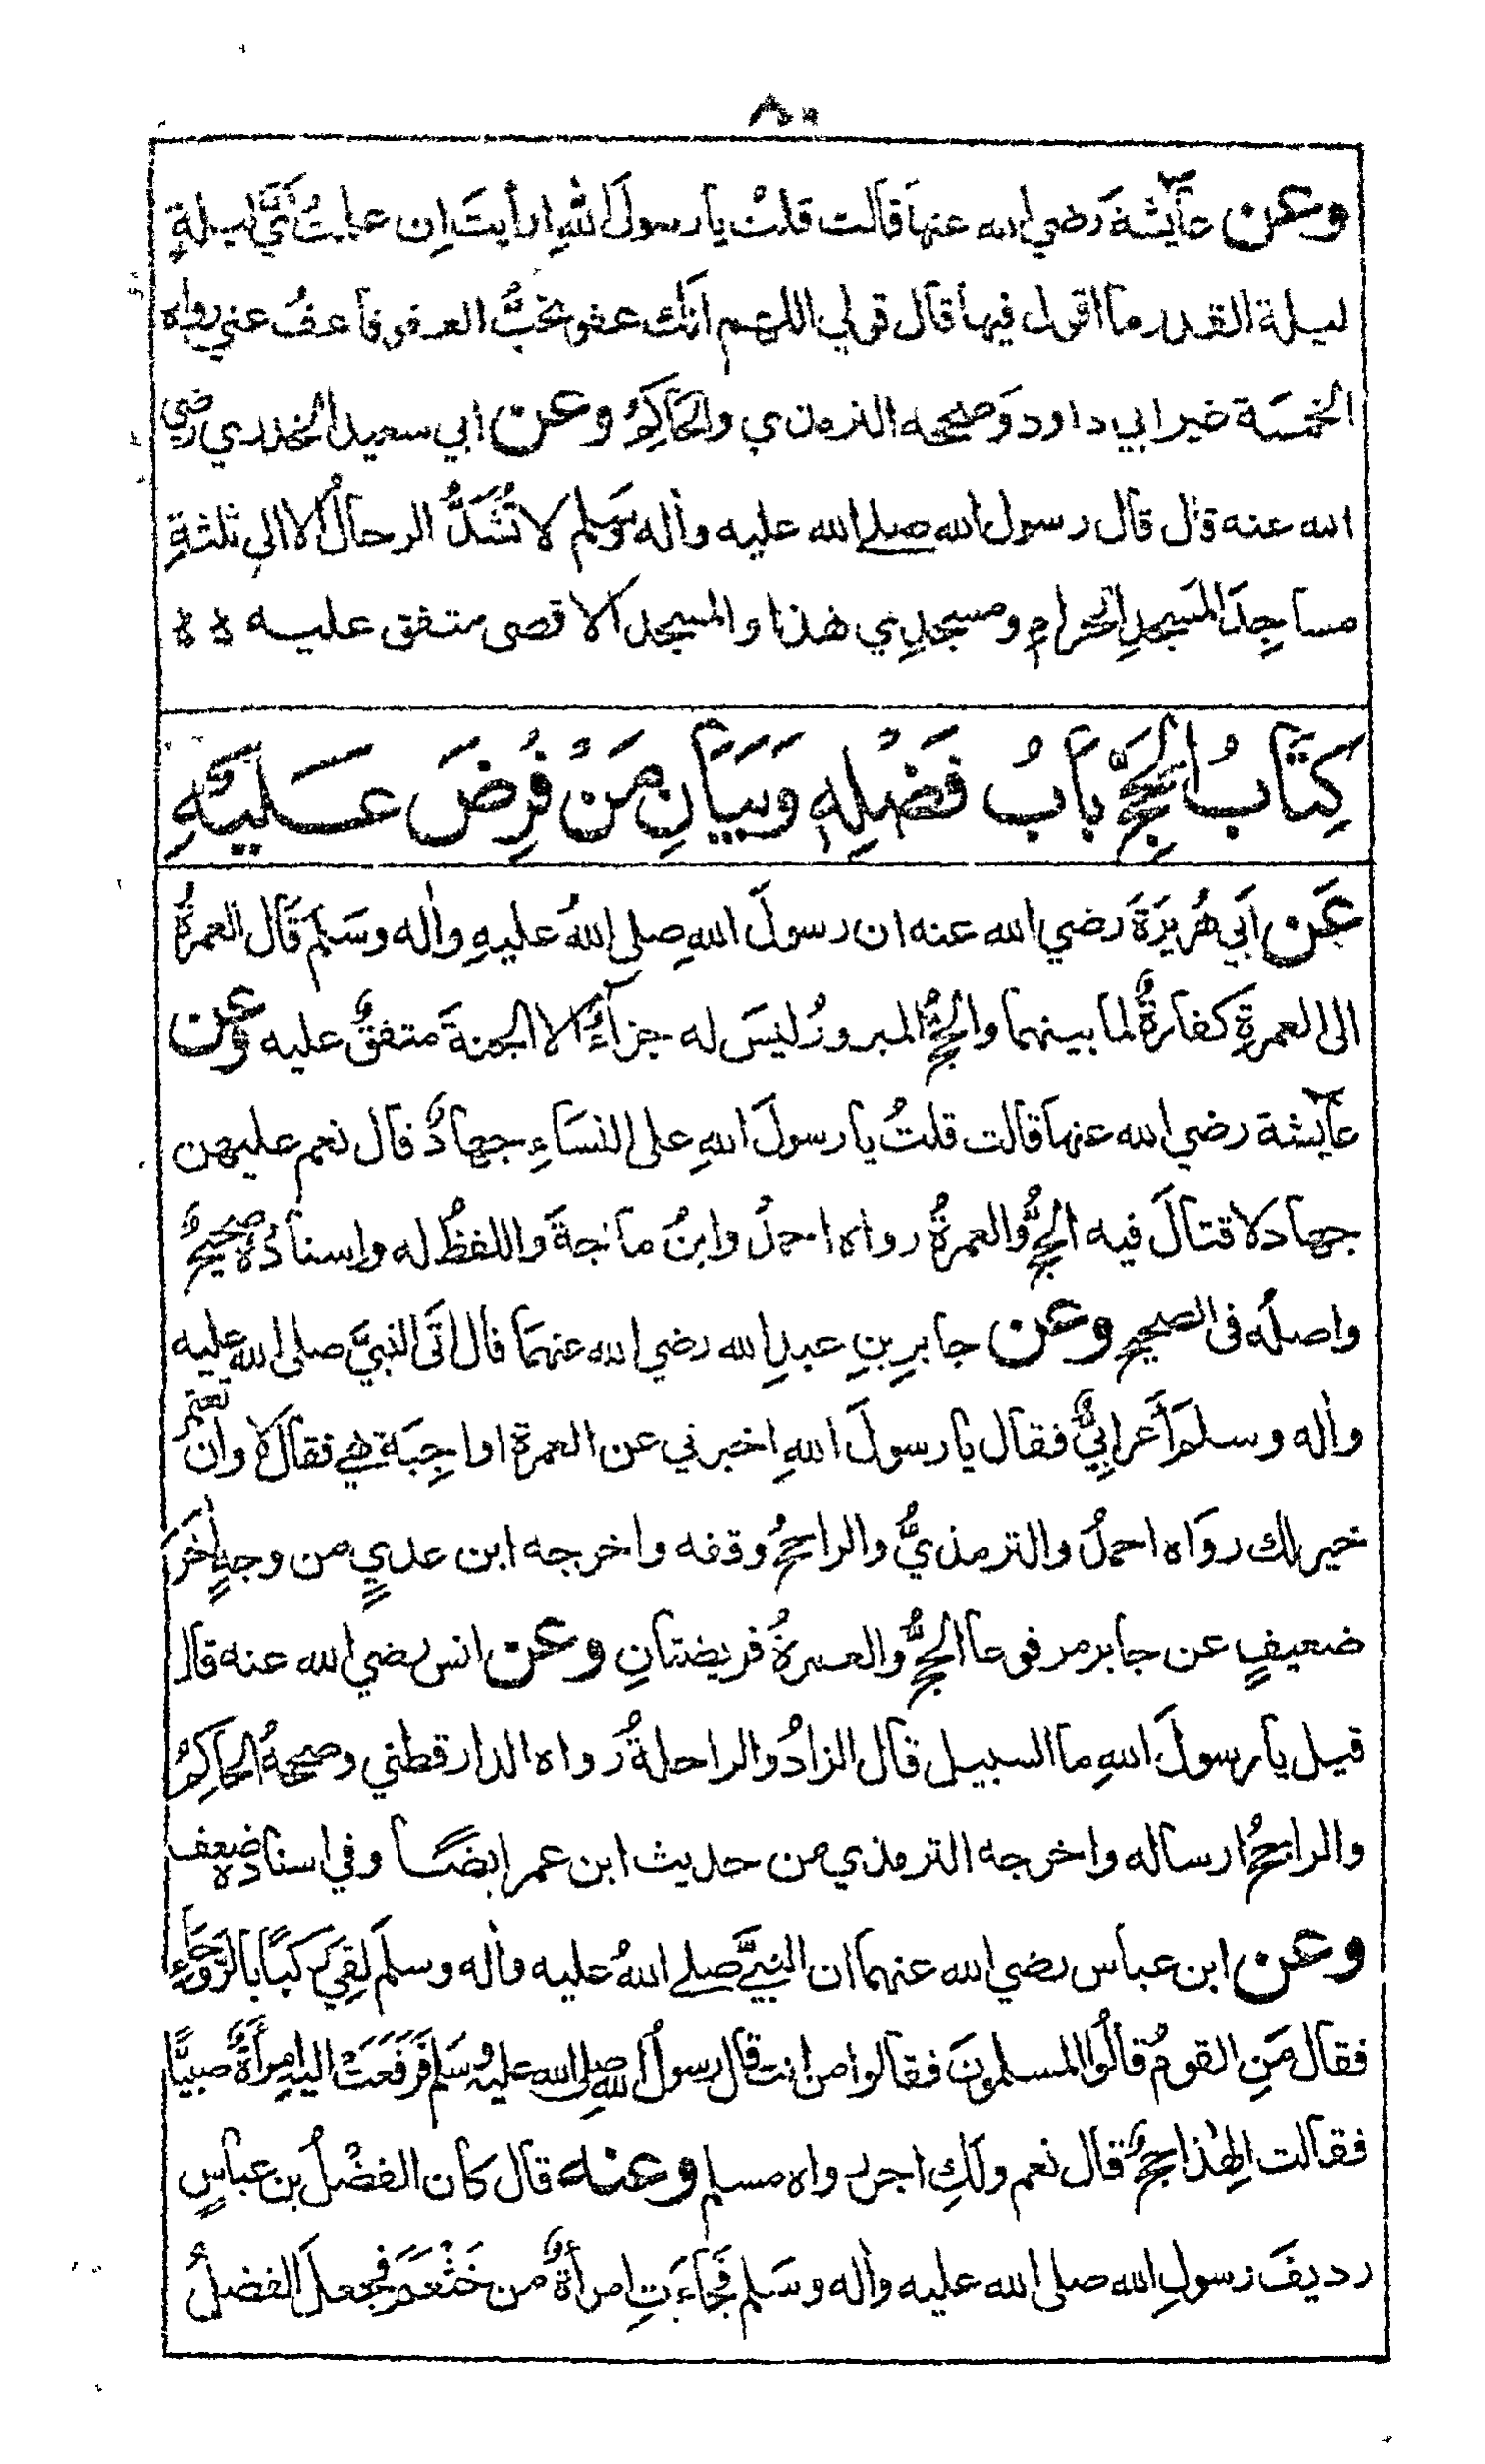 ٨٥
وعن عآئشةَ رَضي الله عنها قالت قلتُ يا رسولَ اللهِ ارأيتَ اِن علمتُ اَيُّ ليلةٍ
ليلة القدر ما اقول فيها قال قولي اللهم انَّك عفو تحبُّ العفو فاعفُ عني رواه
الخمسَة غير ابي داود وَصححه الترمذي والحَاكِمُ وعن ابي سعيد الخدري رضي
الله عنه قال قال رسول الله صلى الله عليه واٰله وسَلم لا تُشَدُّ الرحالُ الا الى ثلثةِ
مساجِدَ المسَجدِ الحَرامِ ومسجدِي هٰذا والمسجد الاقصى متفق عليه ة ة
كِتَابُ الحَجِّ بَابُ فَضْلِهٖ وَبَيَانِ مَنْ فُرِضَ عَلَيْهِ
عَن اَبي هُرَيرَةَ رَضي الله عنه ان رسولَ اللهِ صلى اللهُ عليهِ واٰله وسَلم قَال العمرةُ
الى العمرةِ كفارةٌ لما بينهما والحجُّ المبرورُ ليسَ له جزآءٌ الا الجنةَ متفقٌ عليه وعن
عآئشة رضي الله عنها قالت قلتُ يا رسولَ اللهِ على النسَاءِ جهادٌ قال نعم عليهن
جهاد لا قتالَ فيه الحجُّ والعمرةُ رواه احمدُ وابنُ ماجةَ واللفظُ له واِسنادُهُ صَحيحٌ
واصلُه فى الصحيح وعن جابرِ بنِ عبدِ الله رضي الله عنهمَا قال اَتَى النبيَّ صلى الله عليه
واٰله وسلم اَعرابيٌّ فقال يا رسولَ اللهِ اخبرني عن العمرة اواجِبَة هِي فقال لَا وان تعتمر
خير لك روَاه احمدُ والترمذيُّ والراجحُ وقفه واخرجه ابن عديٍ من وجهٍ اٰخَرَ
ضعيفٍ عن جابر مرفوعا الحجُّ والعمرةُ فريضتانِ وعن انس رضي الله عنه قال
قيل يا رسولَ اللهِ ما السبيل قال الزادُ والراحلةُ رواه الدارقطني وصححهُ الحاكِمُ
والراجحُ ارساله واخرجه الترمذي من حديث ابن عمر ايضًا وفي اسناده ضعف
وعن ابن عباس رضي الله عنهما ان النبيَّ صلى اللهُ عليه واٰله وسلم لَقِيَ رَكبًا بالرَّوحَاءِ
فقال مَنِ القومُ قالُوا المسلمونَ فقالوا من انت قال رسولُ اللهِ صلى الله عليه وسَلم فَرَفَعَتْ اليهِ امرأةٌ صبيًّا
فقالت الِهٰذا حجٌّ قال نعم ولَكِ اجر رواه مسلم وعنه قال كان الفضْلُ بن عباسٍ
رديفَ رسولِ الله صلى الله عليه واٰله وسَلم فَجَآءَتِ امرأةٌ من خَثْعَمَ فَجعلَ الفضلُ